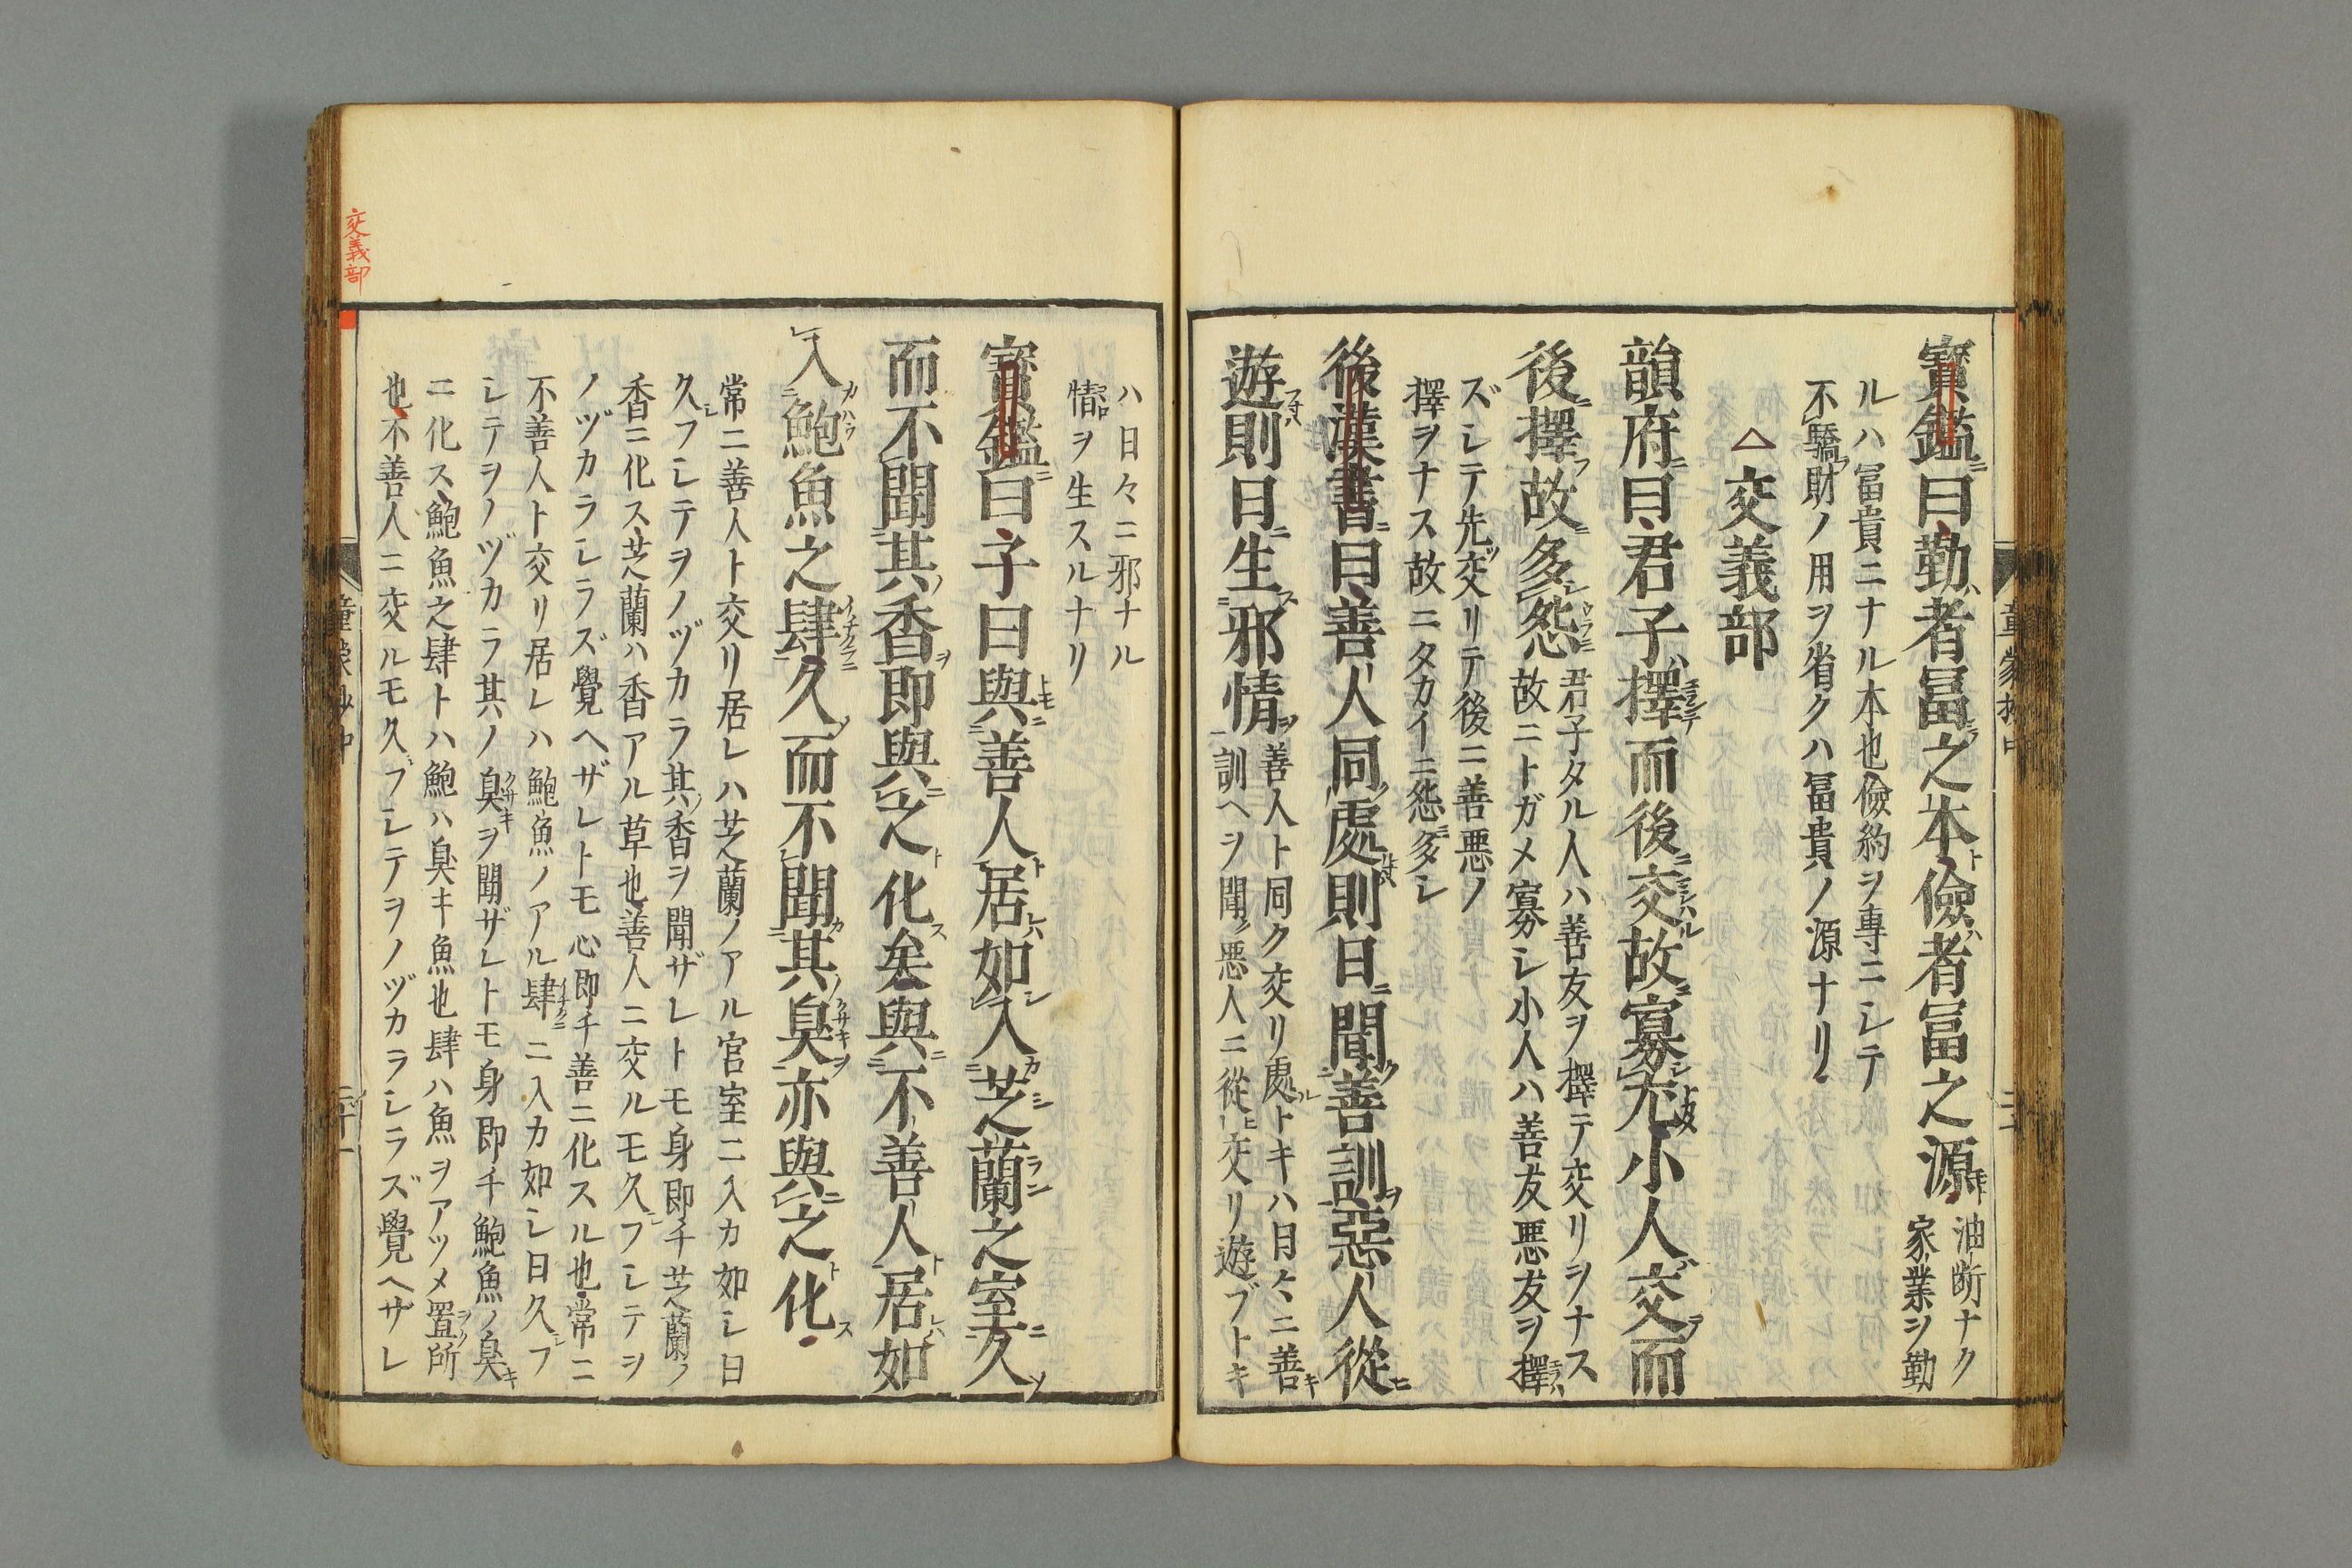 寳鑑曰勤者冨之本儉者冨之源油断ナク
家業ヲ勤
ルハ冨貴ニナル本也儉約ヲ專ニシテ
不驕財ノ用ヲ省クハ冨貴ノ源ナリ
△交義部
韻府曰君子擇而後交故寡尤小人交而
後擇故多怨君子タル人ハ善友ヲ擇テ交リヲナス
故ニトガメ寡シ小人ハ善友悪友ヲ擇
ズシテ先交リテ後ニ善悪ノ
擇ヲナス故ニタカイニ怨多シ
後漢書曰善人同處則日聞善訓惡人從
遊則日生邪情善人ト同ク交リ處トキハ日々ニ善キ
訓ヘヲ聞ク悪人ニ從ヒ交リ遊ブトキ
ハ日々ニ邪ナル
情ヲ生スルナリ
寳鑑曰子曰與善人居如入芝蘭之室久
而不聞其香即與之化矣與不善人居如
入鮑魚之肆久而不聞其臭亦與之化
常ニ善人ト交リ居レハ芝蘭ノアル官室ニ入カ如シ日
久フシテヲノヅカラ其香ヲ聞ザレトモ身即チ芝蘭ノ
香ニ化ス芝蘭ハ香アル草也善人ニ交ルモ久フシテヲ
ノヅカラシラズ覺ヘザレトモ心即チ善ニ化スル也常ニ
不善人ト交リ居レハ鮑魚ノアル肆ニ入カ如シ日久フ
シテヲノヅカラ其ノ臭ヲ聞ザレトモ身即チ鮑魚ノ臭キ
ニ化ス鮑魚之肆トハ鮑ハ臭キ魚也肆ハ魚ヲアツメ置所
也不善人ニ交ルモ久フシテヲノヅカラシラズ覺ヘザレ
交義部
童蒙抄中